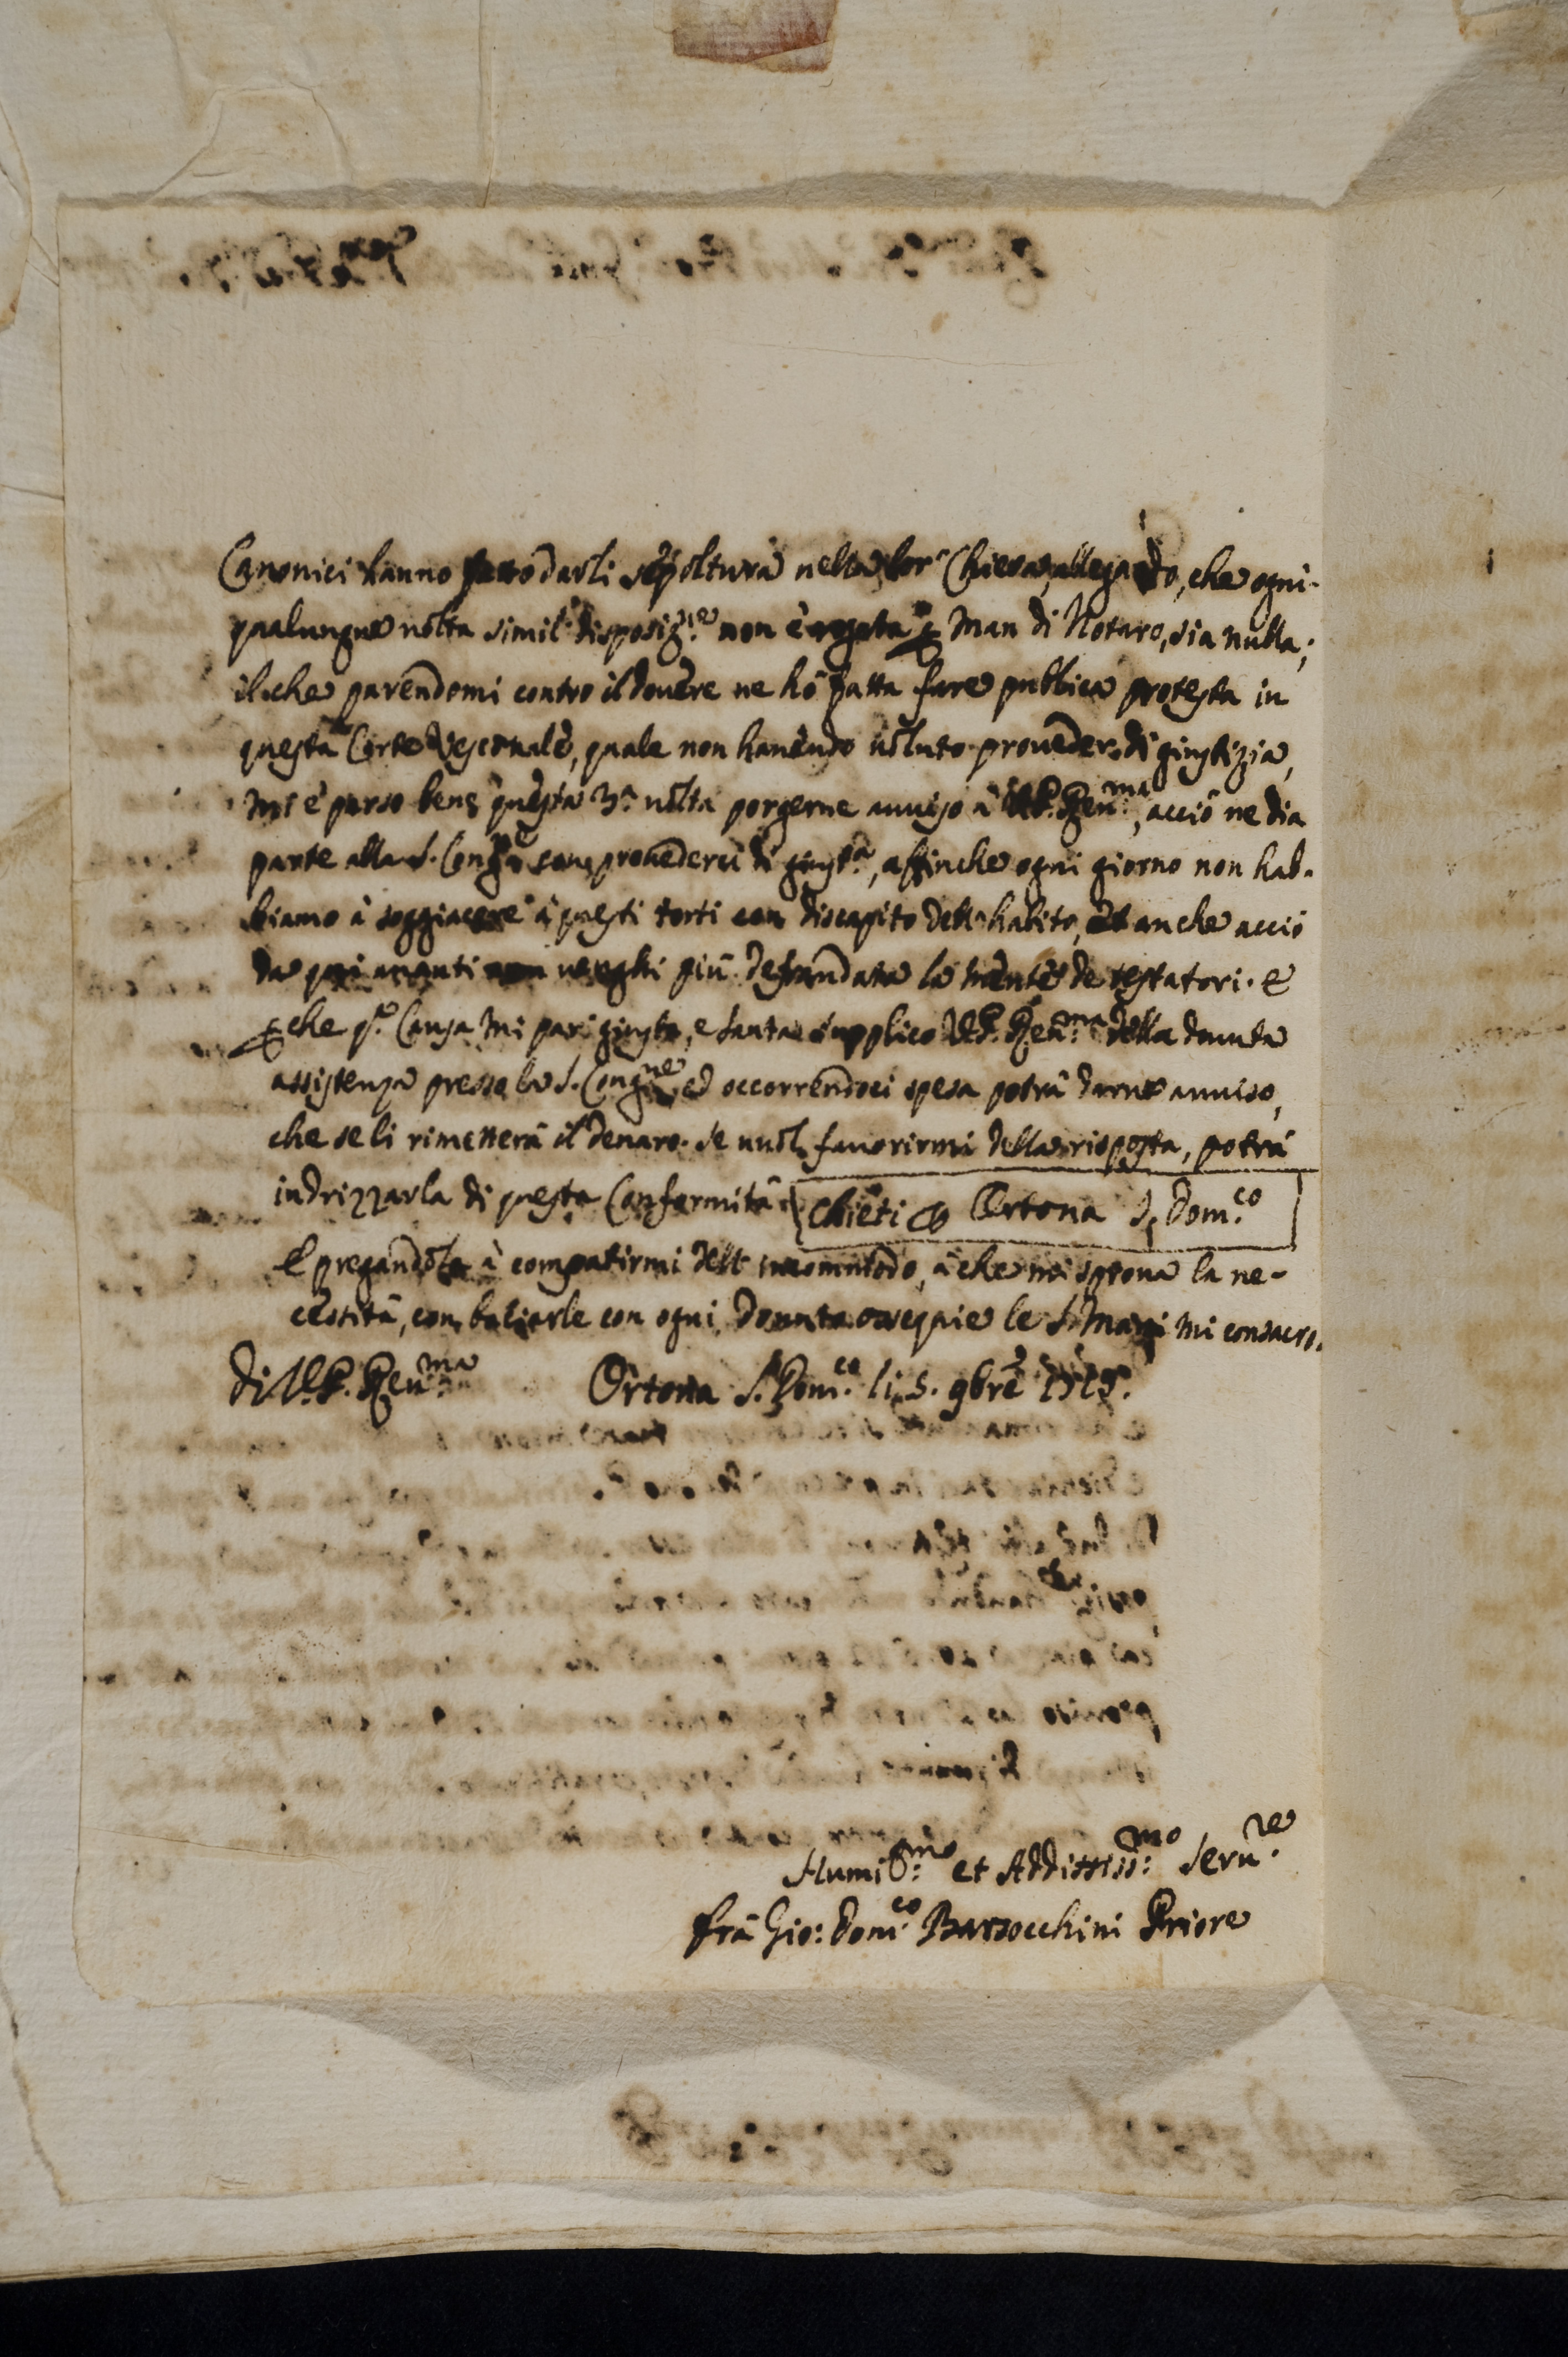 Canonici hanno fatto darli sepoltura nella lor Chiesa, allegando, che ogni-
qualunque uolta simil disposiz.ne non è rogata p man di Notaro, sia nulla;
il che parendomi contro il douere ne hò fatta fare publica protesta in
questa Corte Vesconale, quale non hauendo uoluto proueder di giustizia,
mi è parso bene questa 3.a uolta porgerne auuiso à V.P. Reu.ma, acciò ne dia
parte alla S. Cong.ne prouederci di giust.a, affinche ogni giorno non hab-
biamo à soggiacere à questi torti con discapito dell'habito, et anche acciò
da qui auanti non uenghi più defraudata la mente de testatori. e
pche q.ta Causa mi par giusta, e santa supplico V.P. Reu.ma della douuta
assistenza presso la S. Cong.ne, ed occorrendoci spesa potrà darne auuiso,
che se li rimetterà il denaro. Se uuol fauorirmi della risposta, potrà
indrizzarla di questa Conformità Chieti Ortona S. Dom.co
E pregandola à compatirmi dell'incommodo, à che mi sprona la ne-
cessità, con baciarle con ogni douuto ossequie le S. Mani mi consacro.
Di V.P. Reu.ma Ortona S. Dom.co li 5. 9bre
Humil.mo et Addittiss.mo Seru.re
frà Gio: Dom.co Barsocchini Priore